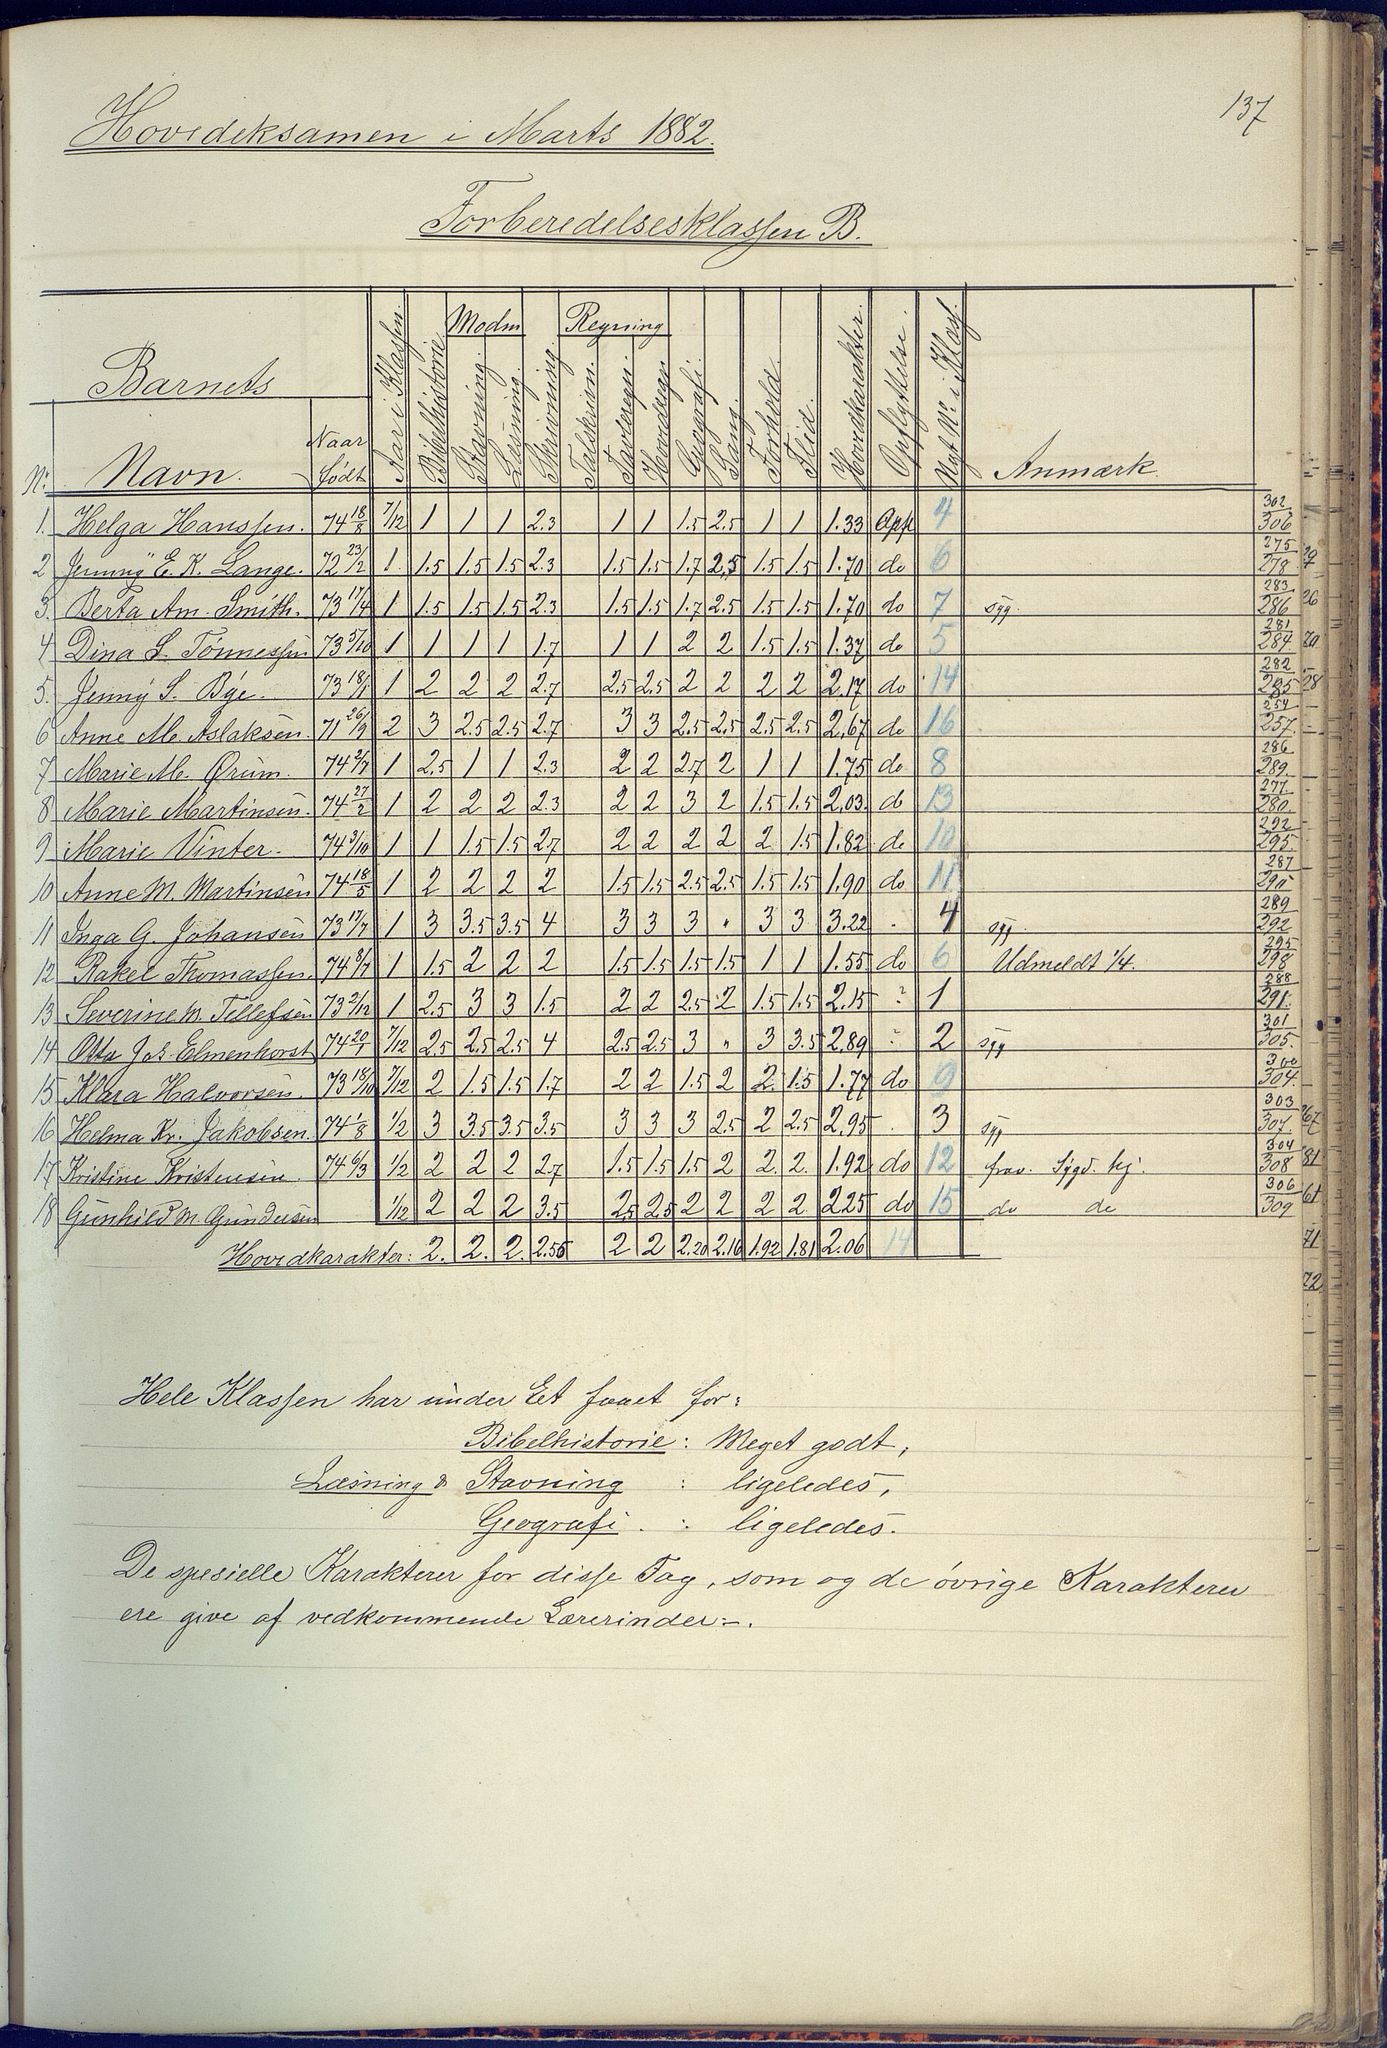 137
Hovedeksamen i Marts 1882.
Forberedelsesklassen B.
Barnets
Modm Regning
Nr. Navn. Naar født Aar i Klassen. Bibelhistorie Stavning. Læsning. Skrivning. Talskrivn. Tavleregn. Hovedregn. Geografi. Sang. Forhold. Flid. Hovedkarakter. Opflyttelse. Nyt Nr. i Klas. Anmærk.
1. Helga Hanssen. 74 18/8 7/12 1 1 1 2.3 1 1 1.5 2.5 1 1 1.33 Opp 4 302/306
2 Jenny E. K. Lange. 72 23/2 1. 1.5 1.5 1.5 2.3 1.5 1.5 1.7 2.5 1.5 1.5 1.70 do 6 275/278
3. Berta Am. Smith. 73 17/4 1 1.5 1.5 1.5 2.3 1.5 1.5 1.7 2.5 1.5 1.5 1.70 do 7 syg. 283/286
4 Dina S. Tønnessen 73 5/10 1 1 1 1 1.7 1 1 2 2 1.5 1.5 1.37 do 5 281/284
5. Jenny S. Bye. 73 18/1 1 2 2 2 2.7 2.5 2.5 2 2 2 2 2.17 do 14 282/285
6 Anne M. Aslaksen. 71 26/9 2 3 2.5 2.5 2.7 3 3 2.5 2.5 2.5 2.5 2.67 do 16 254/257.
7 Marie M. Ørum. 74 2/7 1 2.5 1 1 2.3 2 2 2.7 2 1 1 1.75 do 8 286/289.
8 Marie Martinsen. 74 27/2 1 2 2 2 2.3 2 2 3 2 1.5 1.5 2.03. do 13 277/280.
9 Marie Vinter. 74 3/10 1 1 1.5 1.5 2.7 2 2 2 2 2 1.5 1.82 do 10 292/295.
10 Anne M. Martinsen 74 18/5 1 2 2 2 2 1.5 1.5 2.5 2.5 1.5 1.5 1.90 do 11 287/290
11 Inga G. Johansen 73 17/7 1 3 3.5 3.5 4 3 3 3 " 3 3 3.22 . 4 syg. 289/292
12 Rakel Thomassen. 74 8/7 1 1.5 2 2 2 1.5 1.5 1.5 1.5 1 1 1.55 do 6 Udmeldt 1/4. 295/298
13 Severine M. Tellefsen 73 2/12 1 2.5 3 3 1.5 2 2 2.5 2 1.5 1.5 2.15 ? 1 288/291.
14 Otta Jos. Elmenhorst 74 20/1 7/12 2.5 2.5 2.5 4 2.5 2.5 3 " 3 3.5 2.89 2 syg 301/305.
15 Klara Halvorsen. 73 18/10 7/12 2 1.5 1.5 1.7 2 2 1.5 2 2. 1.5 1.77 do 9 300/304.
16 Helma Kr. Jakobsen. 74 1/8 1/2 3 3.5 3.5 3.5 3 3 3 2.5 2 2.5 2.95 . 3 syg 303/307.
17 Kristine Kristensen. 74 6/3 1/2 2 2 2 2.7 1.5 1.5 1.5 2 2. 2. 1.92 do 12 frav. Sygd. hj. 304/308
18 Gunhild M. Gundersen 1/12 2 2 2 3.5 2.5 2.5 2 2 2 2 2.25 do 15 do do 306/309
Hovedkarakter: 2. 2. 2. 2.56 2 2 2.20 2.16 1.92 1.81 2.06 14
Hele Klassen har under Eet faaet for:
Bibelhistorie: Meget godt,
Læsning & Stavning : ligeledes,
Geografi. : ligeledes.
De spesielle Karakterer for disse Fag, som og de övrige Karakterer
ere give af vedkommende Lærerinder.